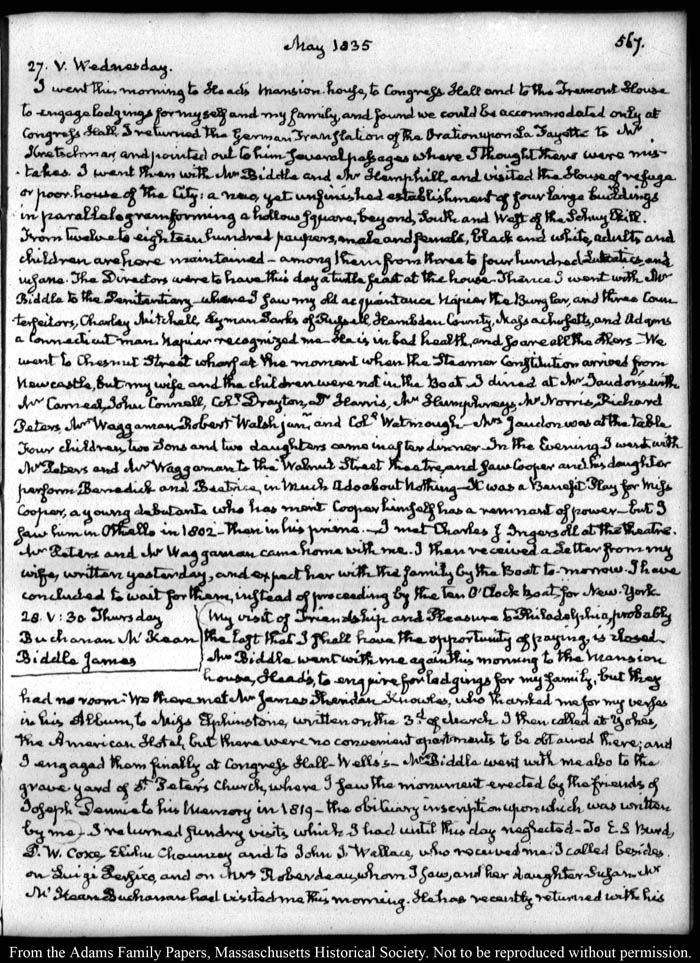 May 1835
567.
27. V. Wednesday.
I went this morning to Head's Mansion-house, to Congress Hall and to the Tremont House
to engage lodgings for myself and my family, and found we could be accommodated only at
Congress Hall. I returned the German Translation of the Oration upon La Fayette to Mr
Kretschmar, and pointed out to him several passages where I thought there were mis-
takes. I went then with Mr Biddle and Mr Hemphill, and visited the House of refuge
or poor house of the City: a new, yet unfinished establishment of four large buildings
in parallelogram forming a hollow square, beyond, South and West of the Schuylkill.
From twelve to eighteen hundred paupers, male and female, black and white, adults and
children are here maintained - among them from three to four hundred Lunatics, and
insane. The Directors were to have this day a turtle feast at the house. Thence I went with Mr
Biddle to the Penitentiary - where I saw my old acquaintance Napier the Burglar, and three Coun-
terfeitors, Charley Mitchell, Lyman Parks of Russell, Hambden County, Massachusetts, and Adams
a Connecticut man. Napier recognized me - He is in bad health, and so are all the others - We
went to Chesnut Street wharf at the moment when the Steamer Constitution arrived from
Newcastle, but my wife and the children were not in the Boat. I dined at Mr Jaudon's with
Mr Carneal, John Connell, Coll Drayton, Dr Harris, Mr Humphreys, Mr Norris, Richard
Peters, Mr Waggaman, Robert Walsh junr and Coll Watmough - Mrs Jaudon was at the table
Four children, two Sons and two daughters came in after dinner - In the Evening I went with
Mr Peters and Mr Waggaman to the Walnut Street theatre, and saw Cooper and his daughter
perform Benedick and Beatrice, in Much Ado about Nothing - It was a Benefit Play for Miss
Cooper, a young debutante who has merit Cooper himself has a remnant of power - but I
saw him in Othello in 1802 - then in his prime. - I met Charles J. Ingersoll at the theatre.
Mr Peters and Mr Waggaman came home with me. I then received a Letter from my
wife, written yesterday, and expect her with the family by the Boat to-morrow. I have
concluded to wait for them, instead of proceeding by the ten O'Clock boat, for New-York
28. V: 30 Thursday
Buchanan McKean
Biddle James
My visit of Friendship and Pleasure to Philadelphia, probably
the last that I shall have the opportunity of paying, is closed
Mr Biddle went with me again this morning to the Mansion
house, Head's, to enquire for lodgings for my family, but they
had no room - We there met Mr James Sheridan Knowles, who thanked me for my verses
in his Album, to Miss Elphinstone, written on the 3d of March I then called at Yohe's,
the American Hotel, but there were no convenient apartments to be obtained there; and
I engaged them finally at Congress Hall - Wells's - Mr Biddle went with me also to the
grave yard of St Peter's Church, where I saw the monument erected by the friends of
Joseph Dennie to his Memory in 1819 - the obituary inscription upon which, was written
by me - I returned sundry visits which I had until this day neglected - To E. S. Burd,
D. W. Coxe, Elihu Chauncey and to John J. Wallace, who received me. I called besides
on Luigi Persico, and on Mrs Roberdeau, whom I saw, and her daughter Susan. Mr
McKean Buchanan had visited me this morning. He has recently returned with his
From the Adams Family Papers, Massachusetts Historical Society. Not to be reproduced without permission.